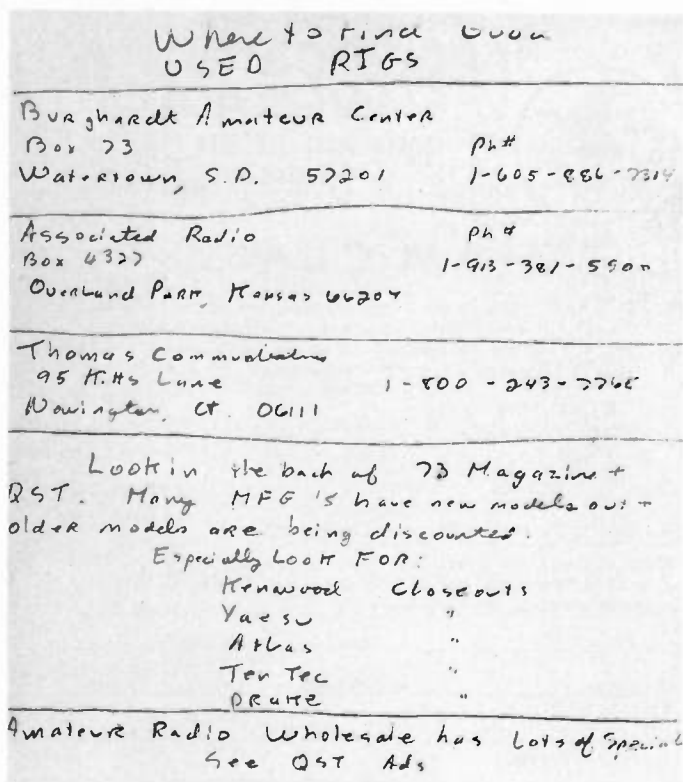 Where to Find Good
USED RIGS
Burghardt Amateur Center
Box 73 Ph#
Watertown, S.D. 57201 1-605-886-7314
Associated Radio Ph#
Box 4327 1-913-381-5900
Overland Park, Kansas 66204
Thomas Communications
95 Kitts Lane 1-800-243-7765
Newington, Ct. 06111
Look in the back of 73 Magazine +
QST. Many MFG'S have new models out +
older models are being discounted.
Especially Look FOR:
Kenwood Closeouts
Yaesu "
Atlas "
Ten Tec "
DRAKE "
Amateur Radio Wholesale has Lots of Specials
See QST Ads